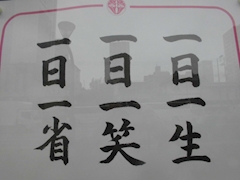 一日一生
一日一笑
一日一省